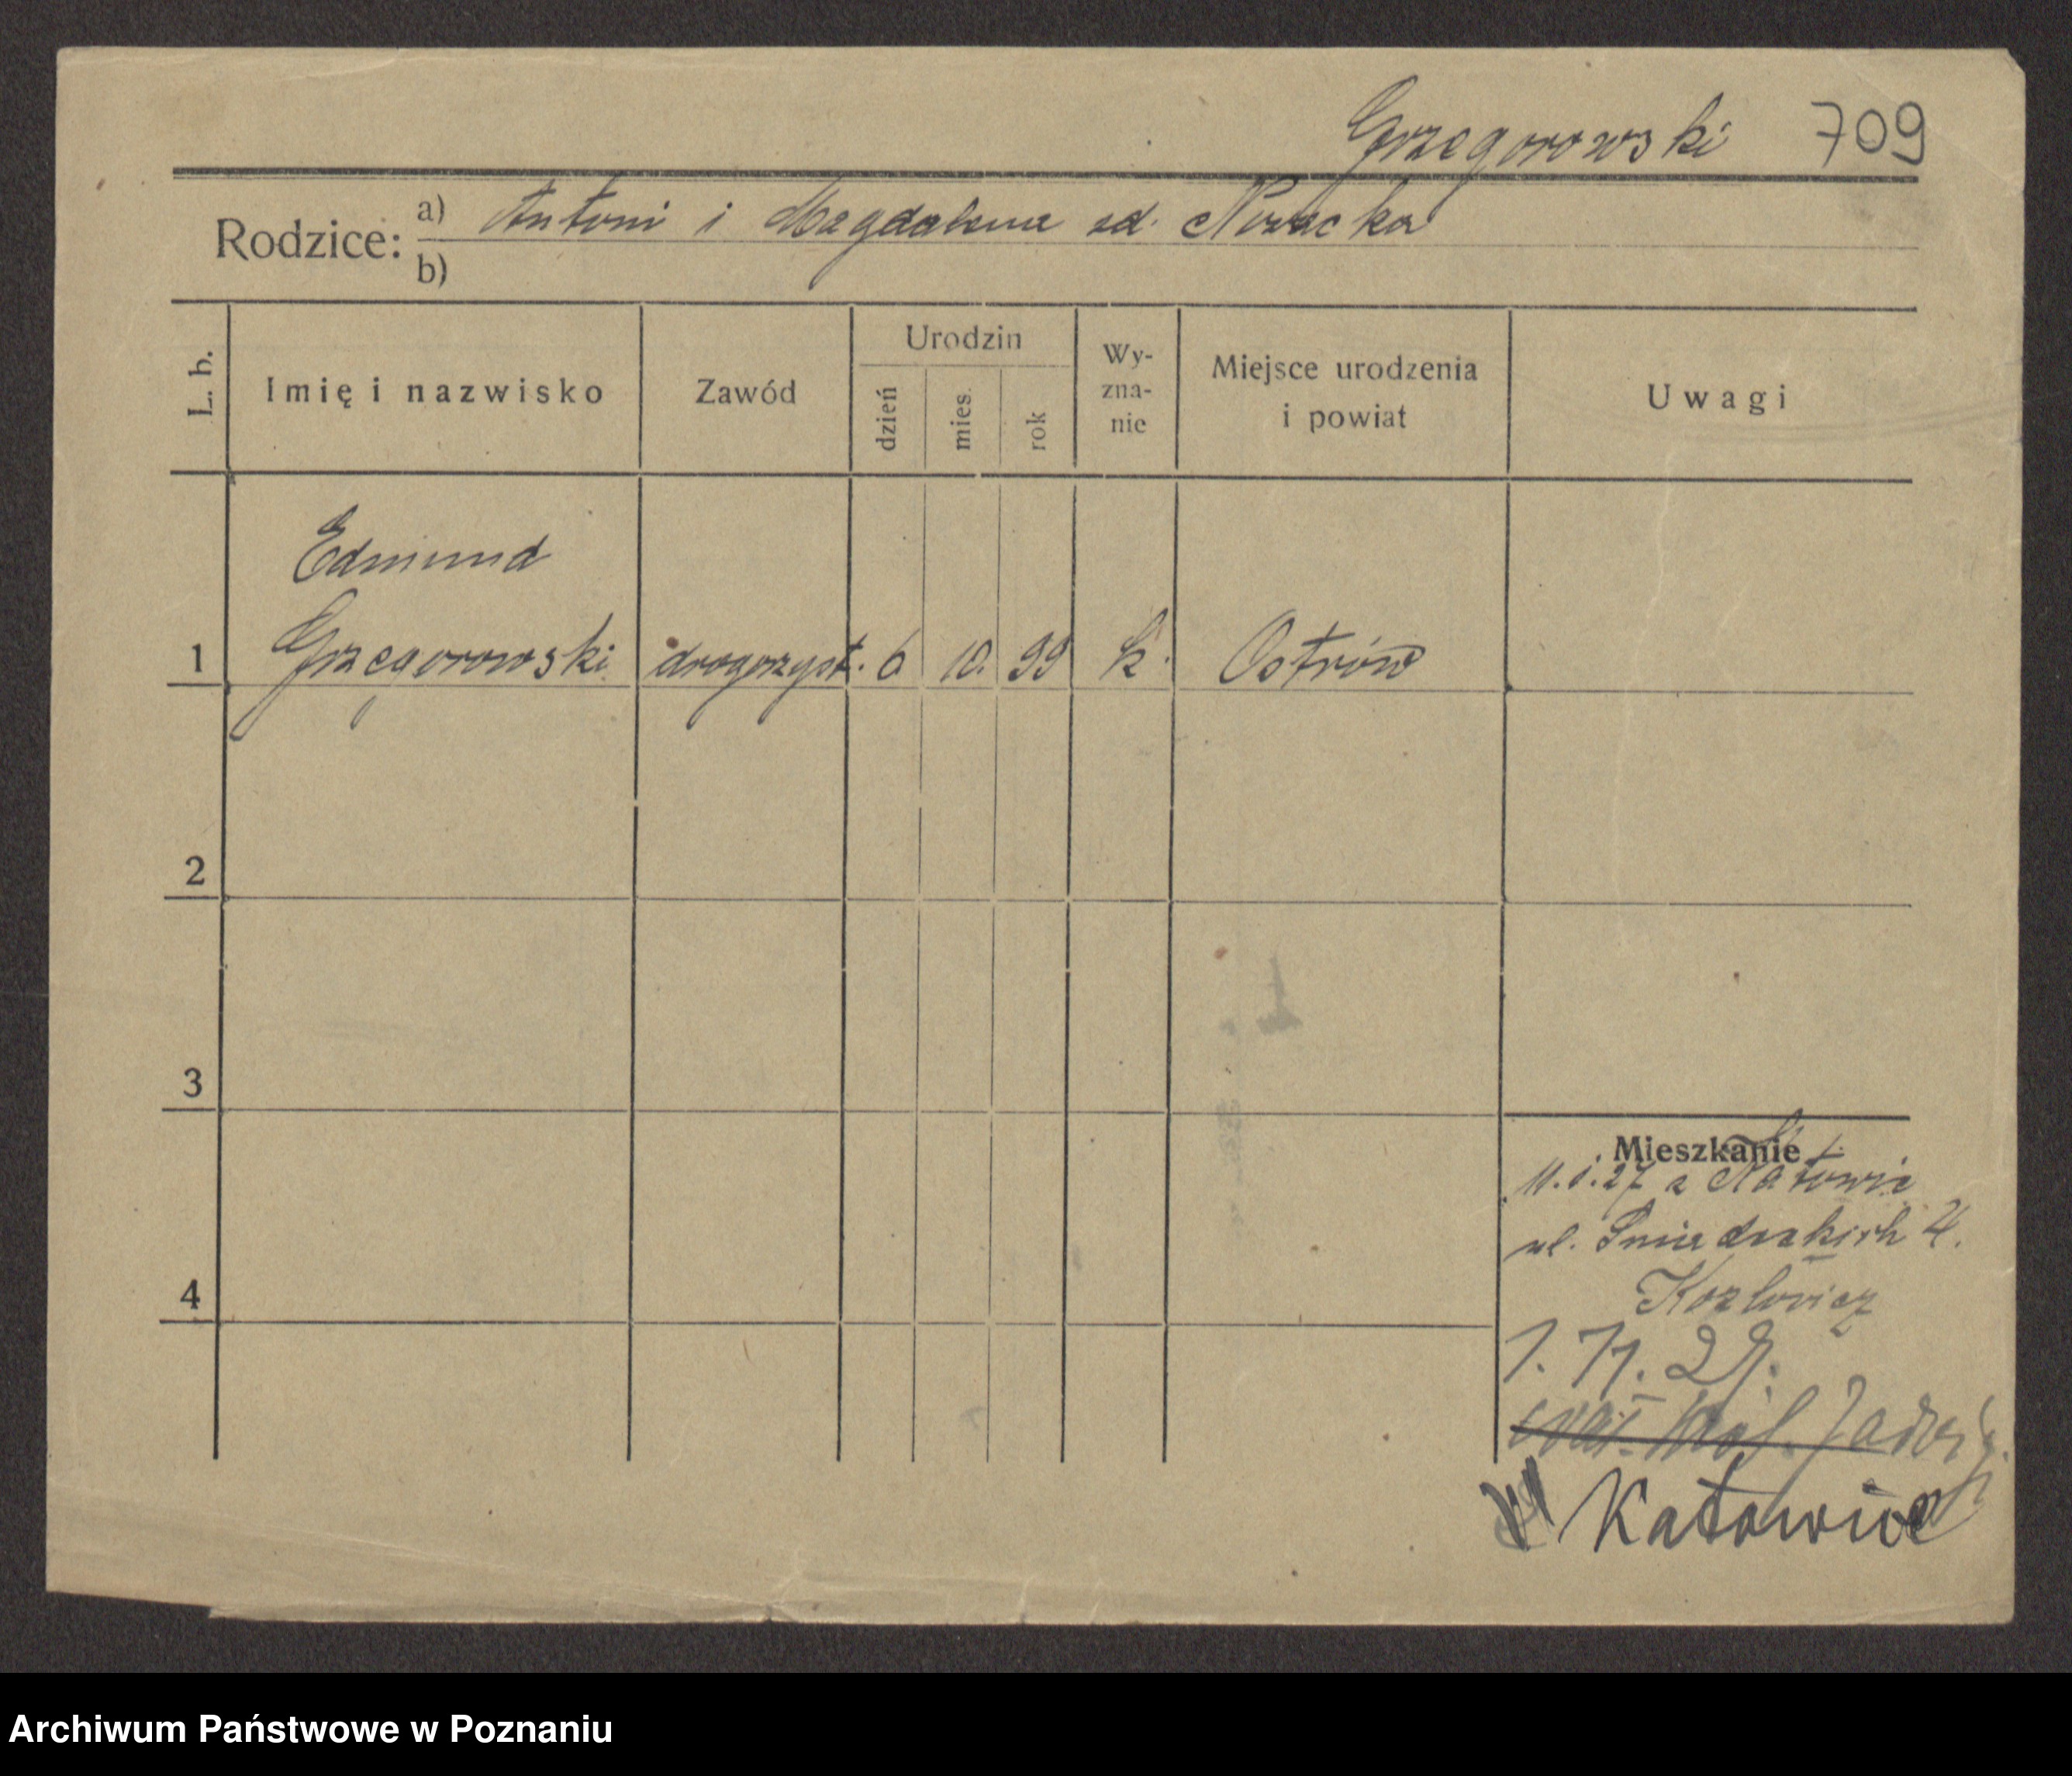 Grzegorowski 709
Rodzice: a) Antoni i Magdalena zd. Nowacka
b)
L. b. Imię i nazwisko Zawód Urodzin dzień mies. rok Wy-zna-nie Miejsce urodzenia i powiat Uwagi
Edmund
1 Grzegorowski drogerzyst. 6 10. 99 k. Ostrów
2
3
4
Mieszkanie
11.1.27 z Katowic
ul. Śniadeckich 4.
1. 71. 29.
Król. Jadwigi
Katowice
Archiwum Państwowe w Poznaniu